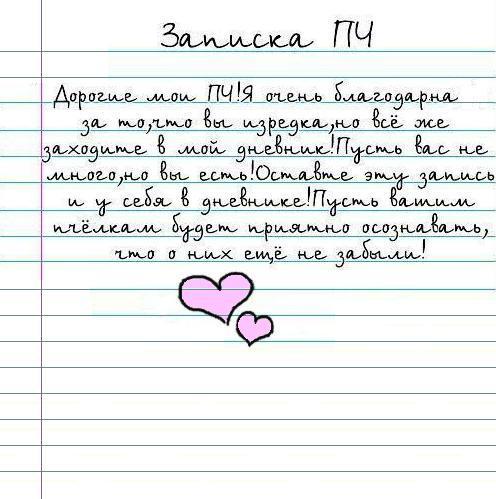 Записка ПЧ
Дорогие мои ПЧ!Я очень благодарна
за то,что вы изредка,но всё же
заходите в мой дневник!Пусть вас не
много,но вы есть!Оставте эту запись
и у себя в дневнике!Пусть вашим
пчёлкам будет приятно осознавать,
что о них ещё не забыли!